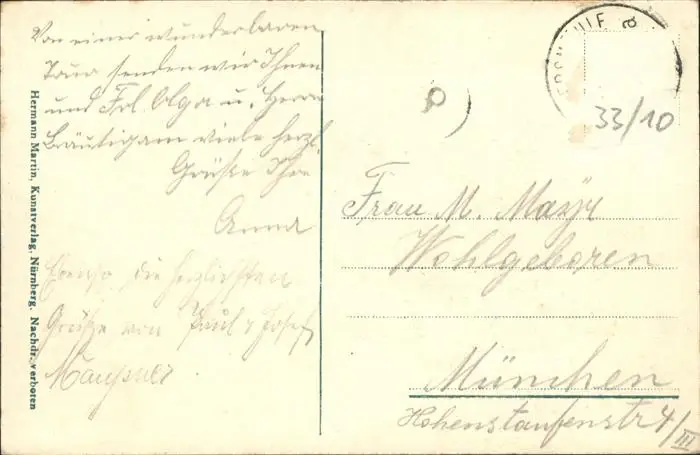 Von einer wunderbaren
Tour senden wir Ihnen
und Frl. Olga u. Herrn
Bräutigam viele herzl.
Grüße Ihre
Anna
Ebenso die herzlichsten
Grüße von Paul & Josef
Hermann Martin, Kunstverlag, Nürnberg. Nachdr. verboten
33/10
Frau M. Mayr
Wohlgeboren
München
Hohenstaufenstr 4/III